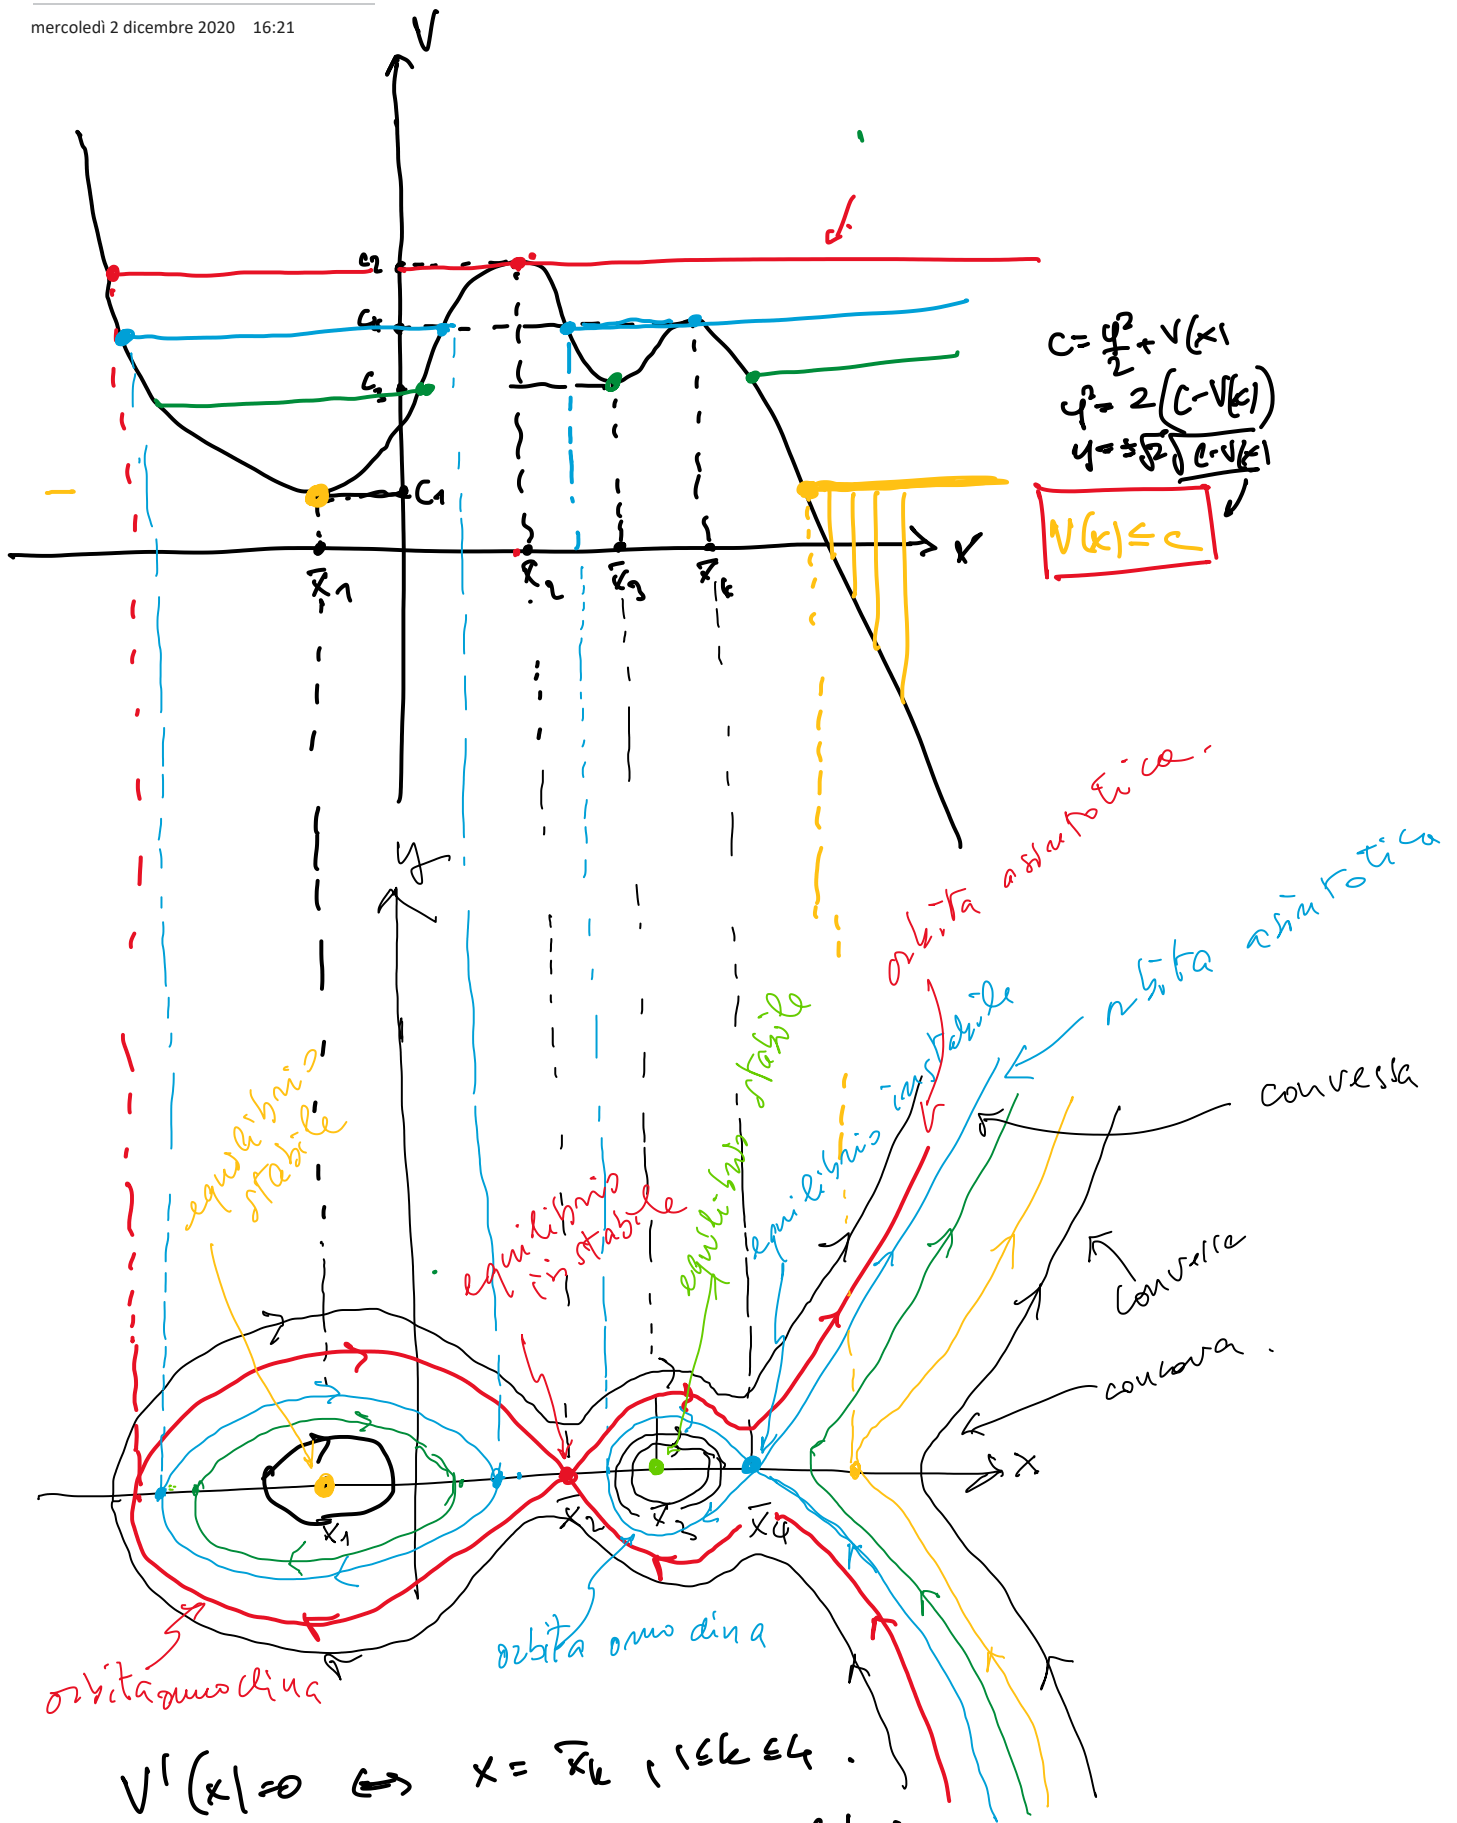 mercoledì 2 dicembre 2020 16:21
V
c2
c4
c3
C1
x
x̄1
x̄2
x̄3
x̄4
C = y²/2 + V(x)
y² = 2(C-V(x))
y = ±√2 √C-V(x)
V(x) ≤ c
y
orbita asintotica.
orbita asintotica
convessa
convessa
concava.
equilibrio
stabile
equilibrio
instabile
equilibrio stabile
equilibrio instabile
x
x̄1
x̄2
x̄3
x̄4
orbita omoclina
orbita omoclina
V'(x)=0 ⇔ x = x̄k , 1≤k≤4 .